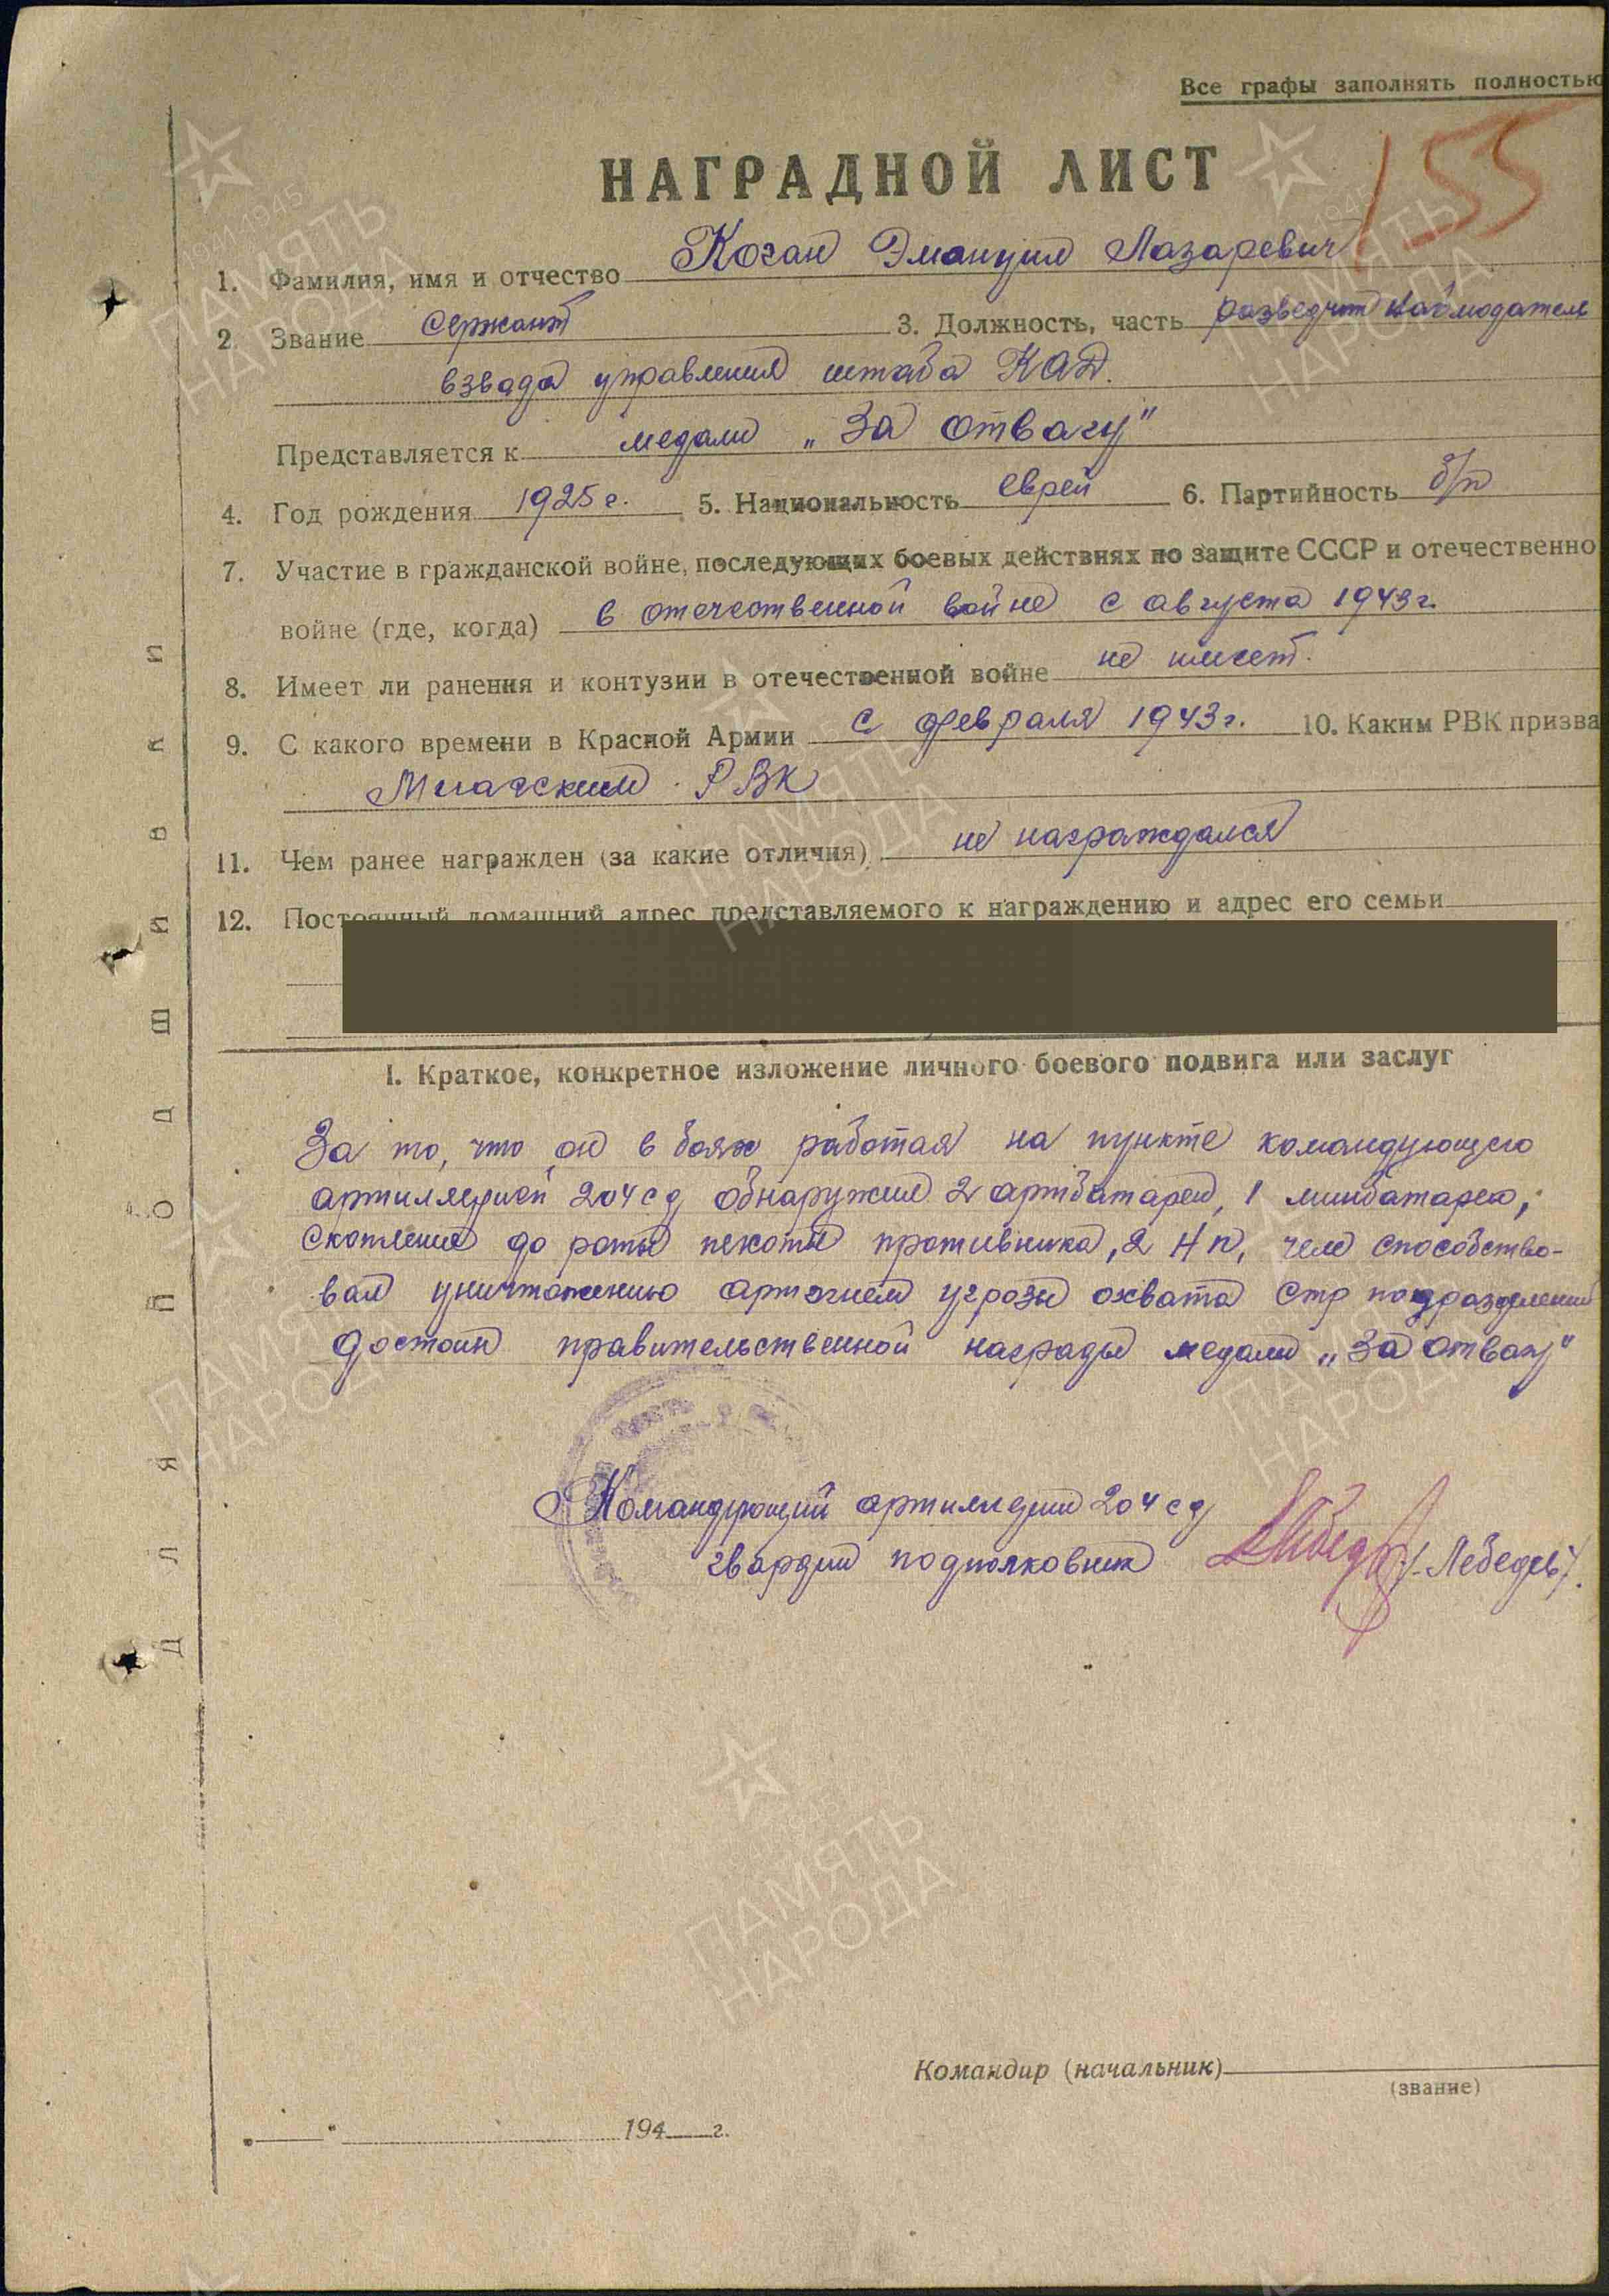 Все графы заполнять полностью
155
НАГРАДНОЙ ЛИСТ
1. Фамилия, имя и отчество Коган Эмануил Лазаревич
2. Звание Сержант 3. Должность, часть разведчик наблюдатель
взвода управления штаба КАД.
Представляется к медали „За отвагу"
4. Год рождения 1925 г. 5. Национальность еврей 6. Партийность б/п
7. Участие в гражданской войне, последующих боевых действиях по защите СССР и отечественно
войне (где, когда) в отечественной войне с августа 1943 г.
8. Имеет ли ранения и контузии в отечественной войне не имеет.
9. С какого времени в Красной Армии с февраля 1943 г. 10. Каким РВК призва
Миасским РВК
11. Чем ранее награжден (за какие отличия) не награждался
12. Постоянный домашний адрес представляемого к награждению и адрес его семьи
I. Краткое, конкретное изложение личного боевого подвига или заслуг
За то, что он в боях работая на пункте командующего
артиллерией 204 сд обнаружил 2 артбатареи, 1 минбатарею,
скопление до роты пехоты противника, 2 НП, чем способство-
вал уничтожению артогнем угрозы охвата стр подразделений
Достоин правительственной награды медали „За отвагу"
Командующий артиллерии 204 сд
гвардии подполковник /Лебедев/.
Командир (начальник)
(звание)
„ " 194 г.
Для подшивки
1941 1945
ПАМЯТЬ
НАРОДА